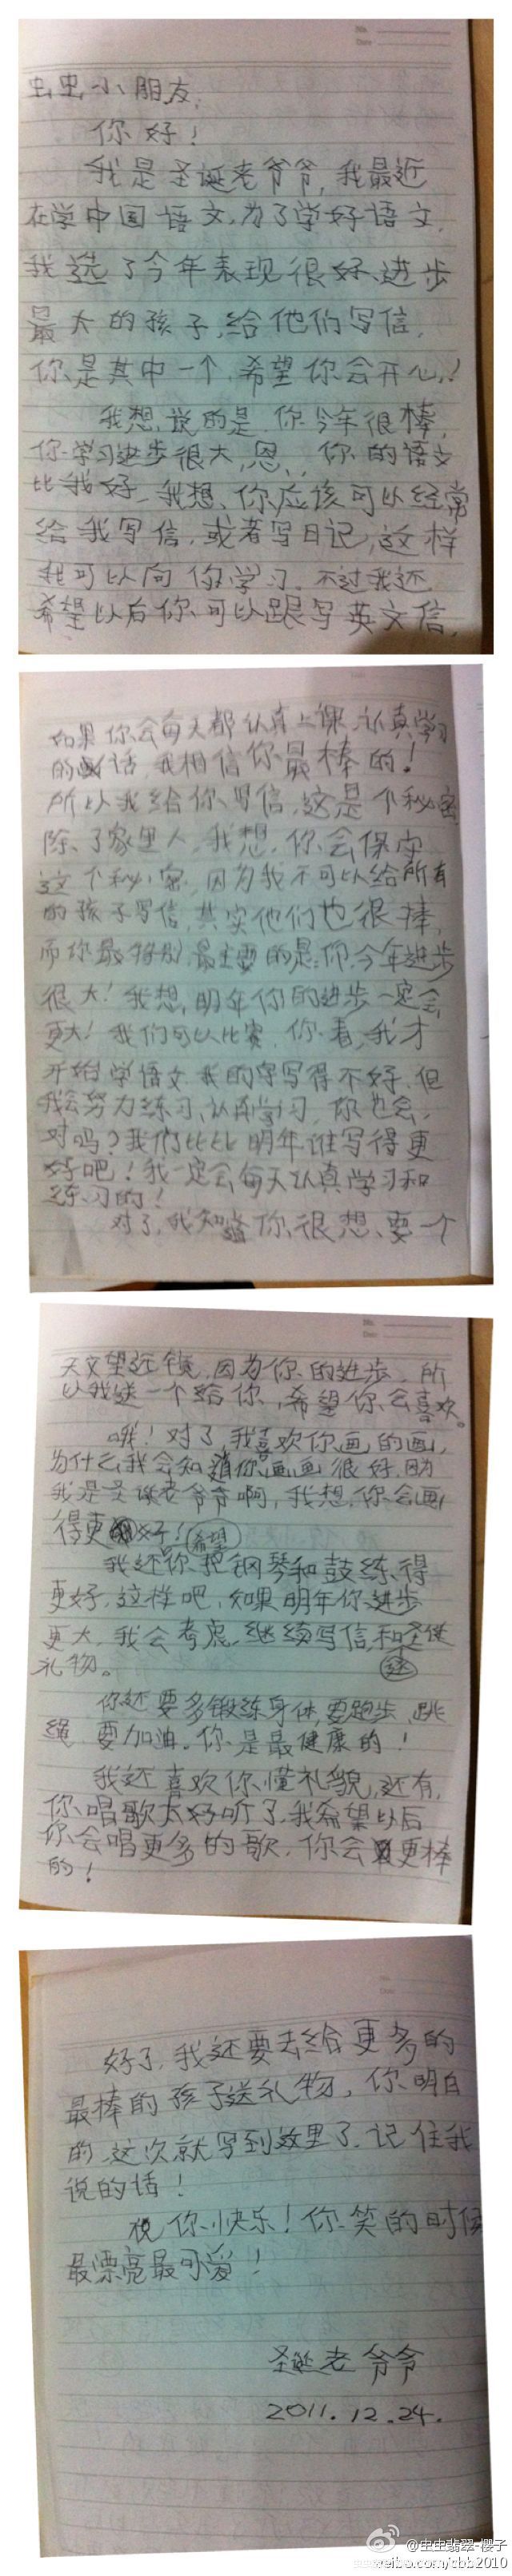 虫虫小朋友:
你好!
我是圣诞老爷爷,我最近
在学中国语文,为了学好语文,
我选了今年表现很好、进步
最大的孩子,给他们写信,
你是其中一个,希望你会开心!
我想说的是,你今年很棒,
你学习进步很大,恩,你的语文
比我好,我想,你应该可以经常
给我写信,或者写日记,这样
我可以向你学习,不过我还
希望以后你可以跟写英文信,
如果你会每天都认真上课,认真学习
的话,我相信你最棒的!
所以我给你写信,这是个秘密,
除了家里人,我想,你会保守
这个秘密,因为我不可以给所有
的孩子写信,其实他们也很棒,
而你最特别,最主要的是,你今年进步
很大!我想,明年你的进步一定会
更大!我们可以比赛,你看,我才
开始学语文,我的字写得不好,但
我会努力练习,认真学习,你也会,
对吗?我们比比明年谁写得更
好吧!我一定会每天认真学习和
练习的!
对了,我知道你很想要一个
天文望远镜,因为你的进步,所
以我送一个给你,希望你会喜欢。
哦!对了,我喜欢你画的画,
为什么我会知道你画画很好,因为
我是圣诞老爷爷啊,我想,你会画
得更好!
我还希望你把钢琴和鼓练得
更好,这样吧,如果明年你进步
更大,我会考虑继续写信,和送圣诞
礼物。
你还要多锻练身体,要跑步、跳
绳,要加油。你是最健康的!
我还喜欢你懂礼貌,还有,
你唱歌太好听了,我希望以后
你会唱更多的歌,你会更棒
的!
好了,我还要去给更多的
最棒的孩子送礼物,你明白
的,这次就写到这里了,记住我
说的话!
祝你快乐!你笑的时候
最漂亮最可爱!
圣诞老爷爷
2011.12.24.
@虫虫翡翠-樱子
weibo.com/cbb2010